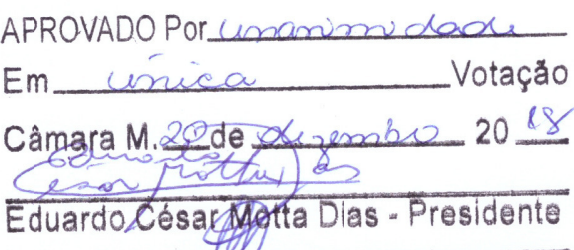 APROVADO Por unanimidade
Em única Votação
Câmara M. 20 de dezembro 20 18
Eduardo César Motta Dias
Eduardo César Motta Dias - Presidente